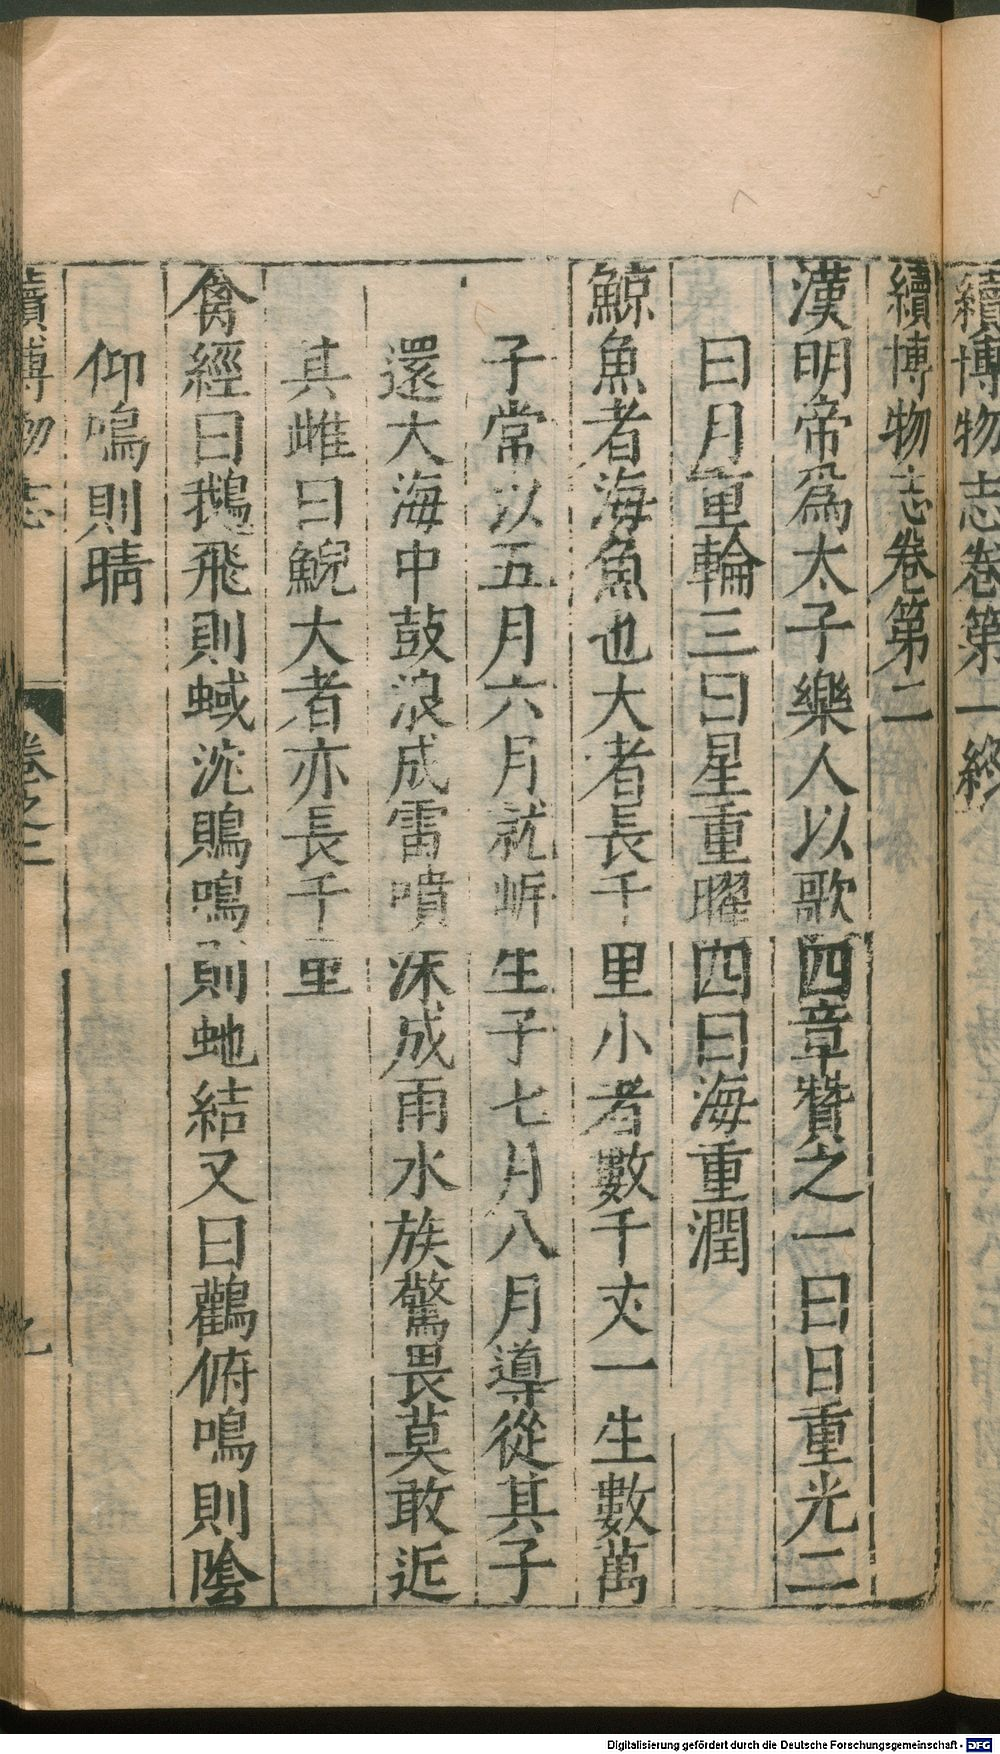 續博物志卷第一終
續博物志卷第二
漢明帝爲太子樂人以歌四章贊之一曰日重光二
曰月重輪三曰星重曜四曰海重潤
鯨魚者海魚也大者長千里小者數千丈一生數萬
子常以五月六月就岍生子七月八月導從其子
還大海中鼓浪成雷噴沫成雨水族驚畏莫敢近
其雌曰鯢大者亦長千里
禽經曰鵝飛則蜮沈鵙鳴則蚦結又曰鸛俯鳴則陰
仰鳴則晴
續博物志 卷之二 九
Digitalisierung gefördert durch die Deutsche Forschungsgemeinschaft - DFG